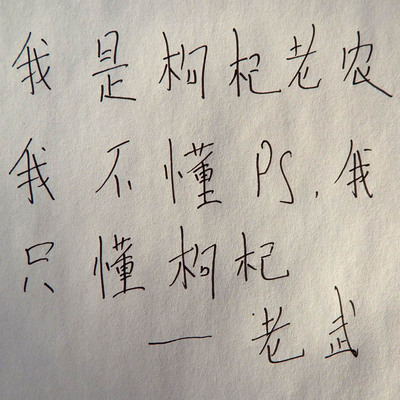 我是枸杞老农
我不懂PS,我
只懂枸杞
— 老武